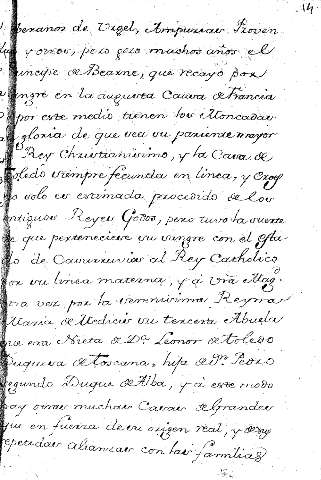 14
beranos de Urgel, Ampurias Proven
y otros, pero gozo muchos años el
rincipe de Bearne, que recayo por
angre en la augusta Casa de Francia
por este medio tienen los Moncadas
gloria de que sea su pariente mayor
Rey Christianisimo, y la Casa de
Toledo siempre fecunda en linea, y
o solo es estimada procedido de los
ntiguos Reyes Godos, pero tuvo la suerte
e que perteneciese su sangre con el Esta
do de Casarruvias al Rey Catholico
or su linea materna, y á Vrã Mag.d
tra vez por la serenisima Reyna
Maria de Medicis su tercera Abuela
que era Nieta de D.ª Leonor de Toledo
Duquesa de Toscana, hija de D.n Pedro
segundo Duque de Alba, y á este modo
hay otras muchas Casas de Grandes
que en fuerza de su origen real, y de
repetidas alianzas con las familias